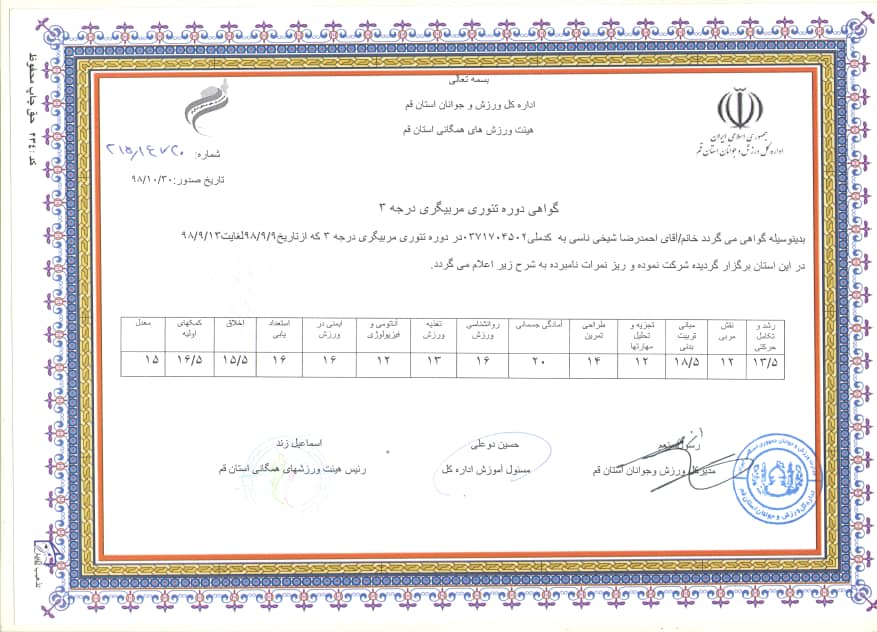 بسمه تعالی
اداره کل ورزش و جوانان استان قم
هیئت ورزش های همگانی استان قم
جمهوری اسلامی ایران
اداره کل ورزش و جوانان استان قم
شماره:
تاریخ صدور: ۹۸/۱۰/۳۰
گواهی دوره تئوری مربیگری درجه ۳
بدینوسیله گواهی می گردد خانم/آقای احمدرضا شیخی ناسی به کدملی۰۳۷۱۷۰۴۵۰۲در دوره تئوری مربیگری درجه ۳ که ازتاریخ۹۸/۹/۹لغایت۹۸/۹/۱۳
در این استان برگزار گردیده شرکت نموده و ریز نمرات نامبرده به شرح زیر اعلام می گردد.
رشد و تکامل حرکتی نقش مربی مبانی تربیت بدنی تجزیه و تحلیل مهارتها طراحی تمرین آمادگی جسمانی روانشناسی ورزش تغذیه ورزش آناتومی و فیزیولوژی ایمنی در ورزش استعداد یابی اخلاق کمکهای اولیه معدل
۱۳/۵ ۱۲ ۱۸/۵ ۱۲ ۱۴ ۲۰ ۱۶ ۱۳ ۱۲ ۱۶ ۱۶ ۱۵/۵ ۱۶/۵ ۱۵
مدیرکل ورزش وجوانان استان قم
حسین دوعلی
مسئول آموزش اداره کل
اسماعیل زند
رئیس هیئت ورزشهای همگانی استان قم
کد: ۲۳۴ حق چاپ محفوظ